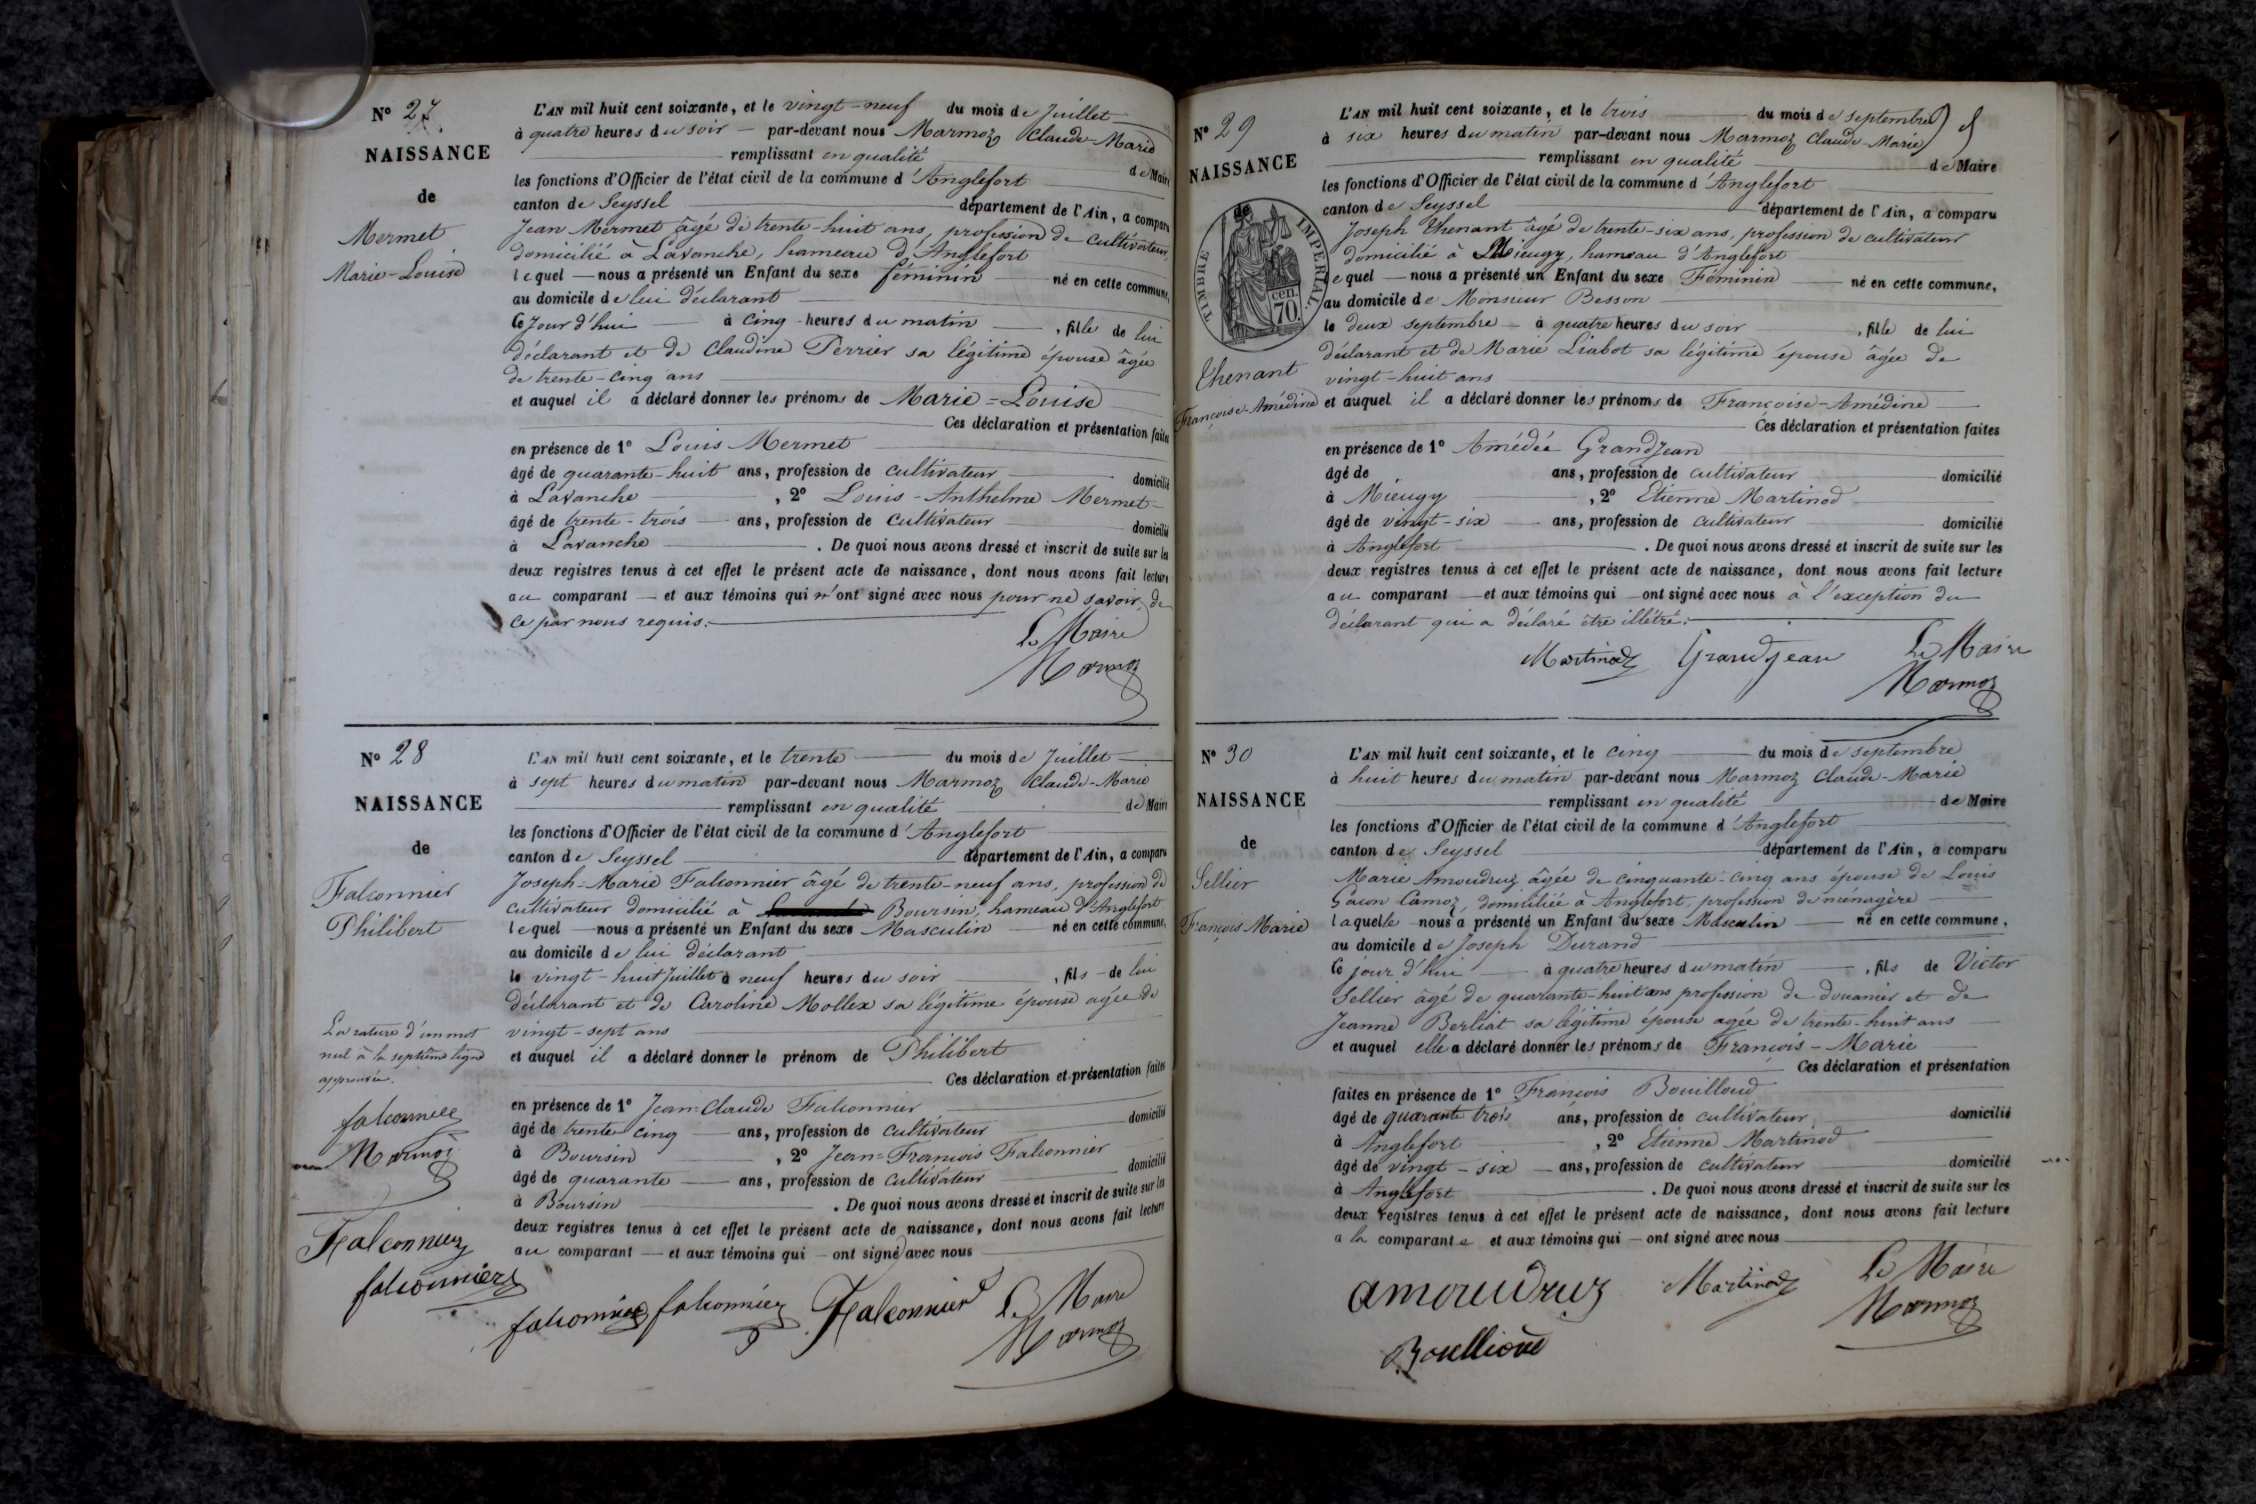 N° 27
NAISSANCE
de
Mermet
Marie-Louise
L'AN mil huit cent soixante, et le vingt-neuf du mois de Juillet
à quatre heures du soir par-devant nous Marmoz Claude-Marie
remplissant en qualité de Maire
les fonctions d'Officier de l'état civil de la commune d'Anglefort
canton de Seyssel département de l'Ain, a comparu
Jean Mermet âgé de trente-huit ans, profession de cultivateur,
domicilié à Lavanche, hameau d'Anglefort
lequel nous a présenté un Enfant du sexe féminin né en cette commune,
au domicile de lui déclarant
Ce jour d'hui à cinq heures du matin, fille de lui
déclarant et de Claudine Perrier sa légitime épouse âgée
de trente-cinq ans
et auquel il a déclaré donner les prénoms de Marie=Louise
Ces déclaration et présentation faites
en présence de 1° Louis Mermet
âgé de quarante-huit ans, profession de cultivateur domicilié
à Lavanche, 2° Louis-Anthelme Mermet
âgé de trente-trois ans, profession de cultivateur domicilié
à Lavanche. De quoi nous avons dressé et inscrit de suite sur les
deux registres tenus à cet effet le présent acte de naissance, dont nous avons fait lecture
au comparant et aux témoins qui n'ont signé avec nous pour ne savoir, de
ce par nous requis.
Le Maire
Marmoz
N° 28
NAISSANCE
de
Falconnier
Philibert
La rature d'un mot
nul à la septième ligne
approuvée.
falconnier
Marmoz
Falconnier
falconnier
L'AN mil huit cent soixante, et le trente du mois de Juillet
à sept heures du matin par-devant nous Marmoz Claude-Marie
remplissant en qualité de Maire
les fonctions d'Officier de l'état civil de la commune d'Anglefort
canton de Seyssel département de l'Ain, a comparu
Joseph=Marie Falconnier âgé de trente-neuf ans, profession de
cultivateur domicilié à Boursin, hameau d'Anglefort
lequel nous a présenté un Enfant du sexe Masculin né en cette commune,
au domicile de lui déclarant
le vingt-huit Juillet à neuf heures du soir, fils de lui
déclarant et de Caroline Mollex sa légitime épouse agée de
vingt-sept ans
et auquel il a déclaré donner le prénom de Philibert
Ces déclaration et présentation faites
en présence de 1° Jean-Claude Falconnier
âgé de trente cinq ans, profession de cultivateur domicilié
à Boursin, 2° Jean=François Falconnier
âgé de quarante ans, profession de cultivateur domicilié
à Boursin. De quoi nous avons dressé et inscrit de suite sur les
deux registres tenus à cet effet le présent acte de naissance, dont nous avons fait lecture
au comparant et aux témoins qui ont signé avec nous
falconnier falconnier Falconnier Le Maire
Marmoz
N° 29
NAISSANCE
de
TIMBRE IMPERIAL
70. cen.
Thenant
Françoise-Amédine
L'AN mil huit cent soixante, et le trois du mois de septembre
à six heures du matin par-devant nous Marmoz Claude-Marie
remplissant en qualité de Maire
les fonctions d'Officier de l'état civil de la commune d'Anglefort
canton de Seyssel département de l'Ain, a comparu
Joseph Thenant âgé de trente-six ans, profession de cultivateur
domicilié à Mieugy, hameau d'Anglefort
lequel nous a présenté un Enfant du sexe Féminin né en cette commune,
au domicile de Monsieur Besson
le deux septembre à quatre heures du soir, fille de lui
déclarant et de Marie Liabot sa légitime épouse âgée de
vingt-huit ans
et auquel il a déclaré donner les prénoms de Françoise-Amédine
Ces déclaration et présentation faites
en présence de 1° Amédée Grandjean
âgé de ans, profession de cultivateur domicilié
à Mieugy, 2° Etienne Martinod
âgé de vingt-six ans, profession de cultivateur domicilié
à Anglefort. De quoi nous avons dressé et inscrit de suite sur les
deux registres tenus à cet effet le présent acte de naissance, dont nous avons fait lecture
au comparant et aux témoins qui ont signé avec nous à l'exception du
déclarant qui a déclaré être illétré.
Martinod Grandjean Le Maire
Marmoz
N° 30
NAISSANCE
de
Sellier
François Marie
L'AN mil huit cent soixante, et le cinq du mois de septembre
à huit heures du matin par-devant nous Marmoz Claude-Marie
remplissant en qualité de Maire
les fonctions d'Officier de l'état civil de la commune d'Anglefort
canton de Seyssel département de l'Ain, a comparu
Marie Amoudruz âgée de cinquante-cinq ans épouse de Louis
Gacon Camoz, domiciliée à Anglefort, profession de ménagère
laquelle nous a présenté un Enfant du sexe Masculin né en cette commune,
au domicile de Joseph Durand
Ce jour d'hui à quatre heures du matin, fils de Victor
Sellier âgé de quarante-huit ans profession de douanier et de
Jeanne Berliat sa légitime épouse agée de trente-huit ans
et auquel elle a déclaré donner les prénoms de François-Marie
Ces déclaration et présentation
faites en présence de 1° François Bouilloud
âgé de quarante trois ans, profession de cultivateur domicilié
à Anglefort, 2° Etienne Martinod
âgé de vingt-six ans, profession de cultivateur domicilié
à Anglefort. De quoi nous avons dressé et inscrit de suite sur les
deux registres tenus à cet effet le présent acte de naissance, dont nous avons fait lecture
a la comparante et aux témoins qui ont signé avec nous
amoudruz Martinod Le Maire
Marmoz